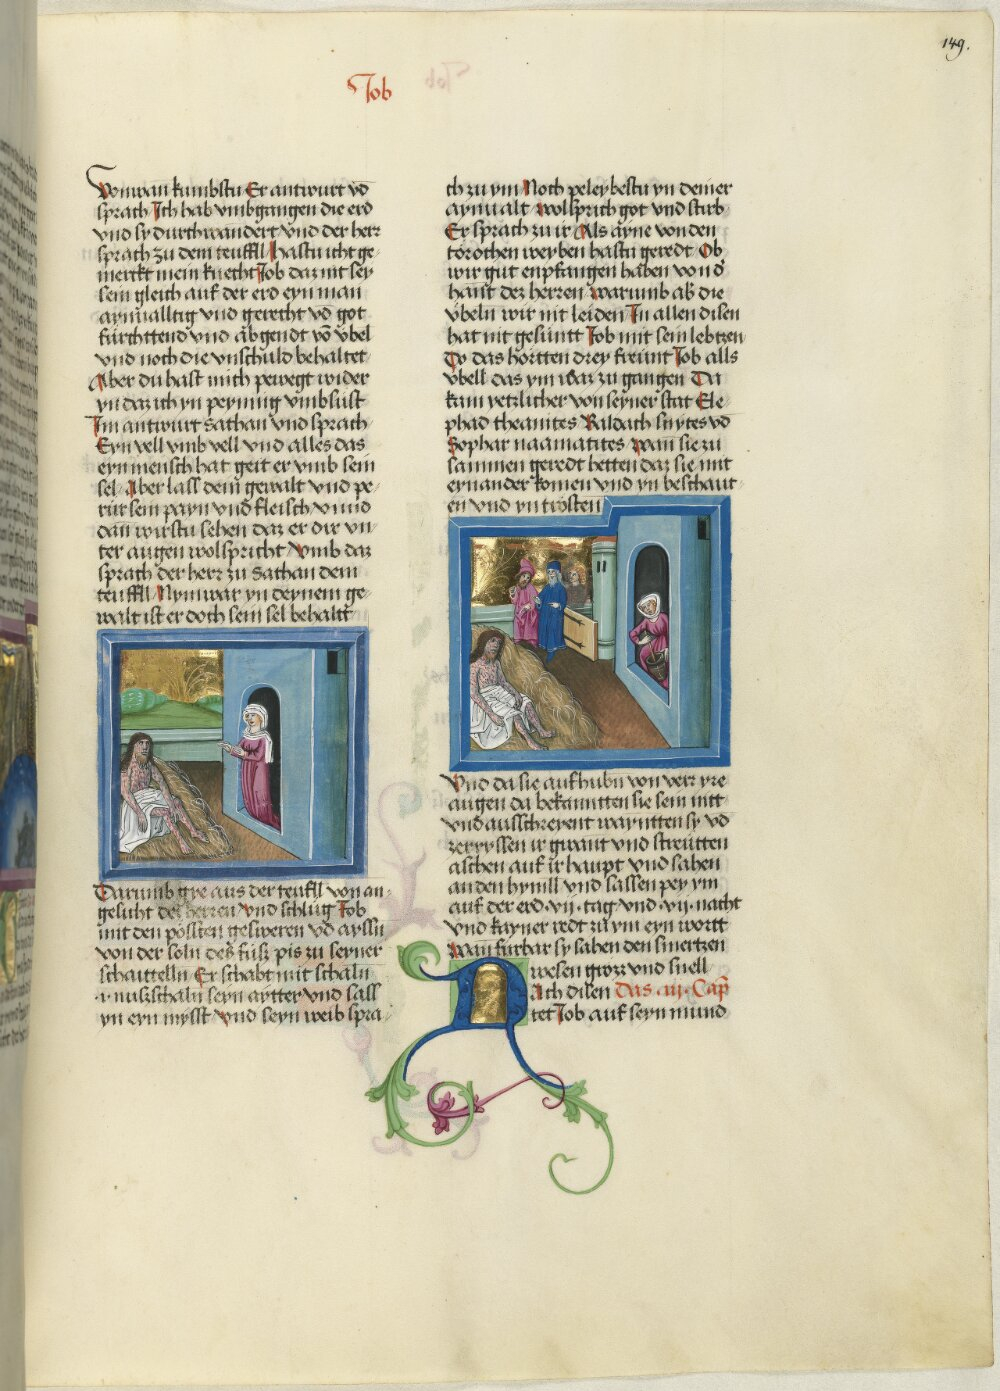 149.
Job
Vonwan kumbstu Er antwurt vd
sprach Ich hab vmbgangen die erd
vnd sy durchwandert vnd der herr
sprach zu dem teuffl Hastu icht ge-
merckt mein knecht Job daz nit sey
sein gleich auf der erd eyn man
aynualltig vnd gerecht vd got
fürchttend vnd abgendt vō vbel
vnd noch die vnschuld behaltet
Aber du hast mich pewegt wider
yn daz ich yn peynnig vmb sust
Im antwurt Sathan vnd sprach
Eyn vell vmb vell vnd alles das
eyn mensch hat geit er vmb sein
sel Aber lass dein gewalt vnd pe-
rür sein payn vnd fleisch vnnd
dan wirstu sehen daz er dir vn-
ter augen wolspricht Vmb daz
sprach der herr zu Sathan dem
teuffl Nym war yn deynem ge-
walt ist er doch sein sel behaltt
Darumb gye aus der teufll von an-
gesicht des herren vnd schlug Job
mit den pössten gesweren vd ayssn
von der soln des fusz pis zu seyner
schaittelln Er schabt mit schaln
v nuszschaln seyn aytter vnd sass
yn eyn mysst vnd seyn weib spra-
ch zu ym Noch peleybestu yn deiner
aynualt wolsprich got vnd stirb
Er sprach zu ir Als ayne von den
torothen weyben hastu geredt Ob
wir gut enpfangen haben von d
hant der herren warumb ab die
vbeln wir nit leiden In allen disen
hat nit gesuntt Job mit sein lebtzen
Do das hortten drey freunt Job alls
vbell das ym waz zu gangen Da
kam yetzlicher von seyner stat Ele-
phad themanites Baldach suytes vd
Sophar naamatites Wan sie zu
sammen geredt hetten daz sie mit
eynander komen vnd yn beschaut-
en vnd yn trösten
Vnd da sie aufhubn von verr yre
augen da bekantten sie sein nitt
vnd ausschreyent wayntten sy vd
zerryssen ir gwant vnd streutten
aschen auf ir haupt vnd sahen
an den hymll vnd sassen pey ym
auf der erd vij tag vnd vij nacht
vnd kayner redt zu ym eyn wortt
Wan fürbar sy sahen den smertzen
wesen grozz vnd snell
Nach disen Das iij Cap̄
tet Job auf seyn mund